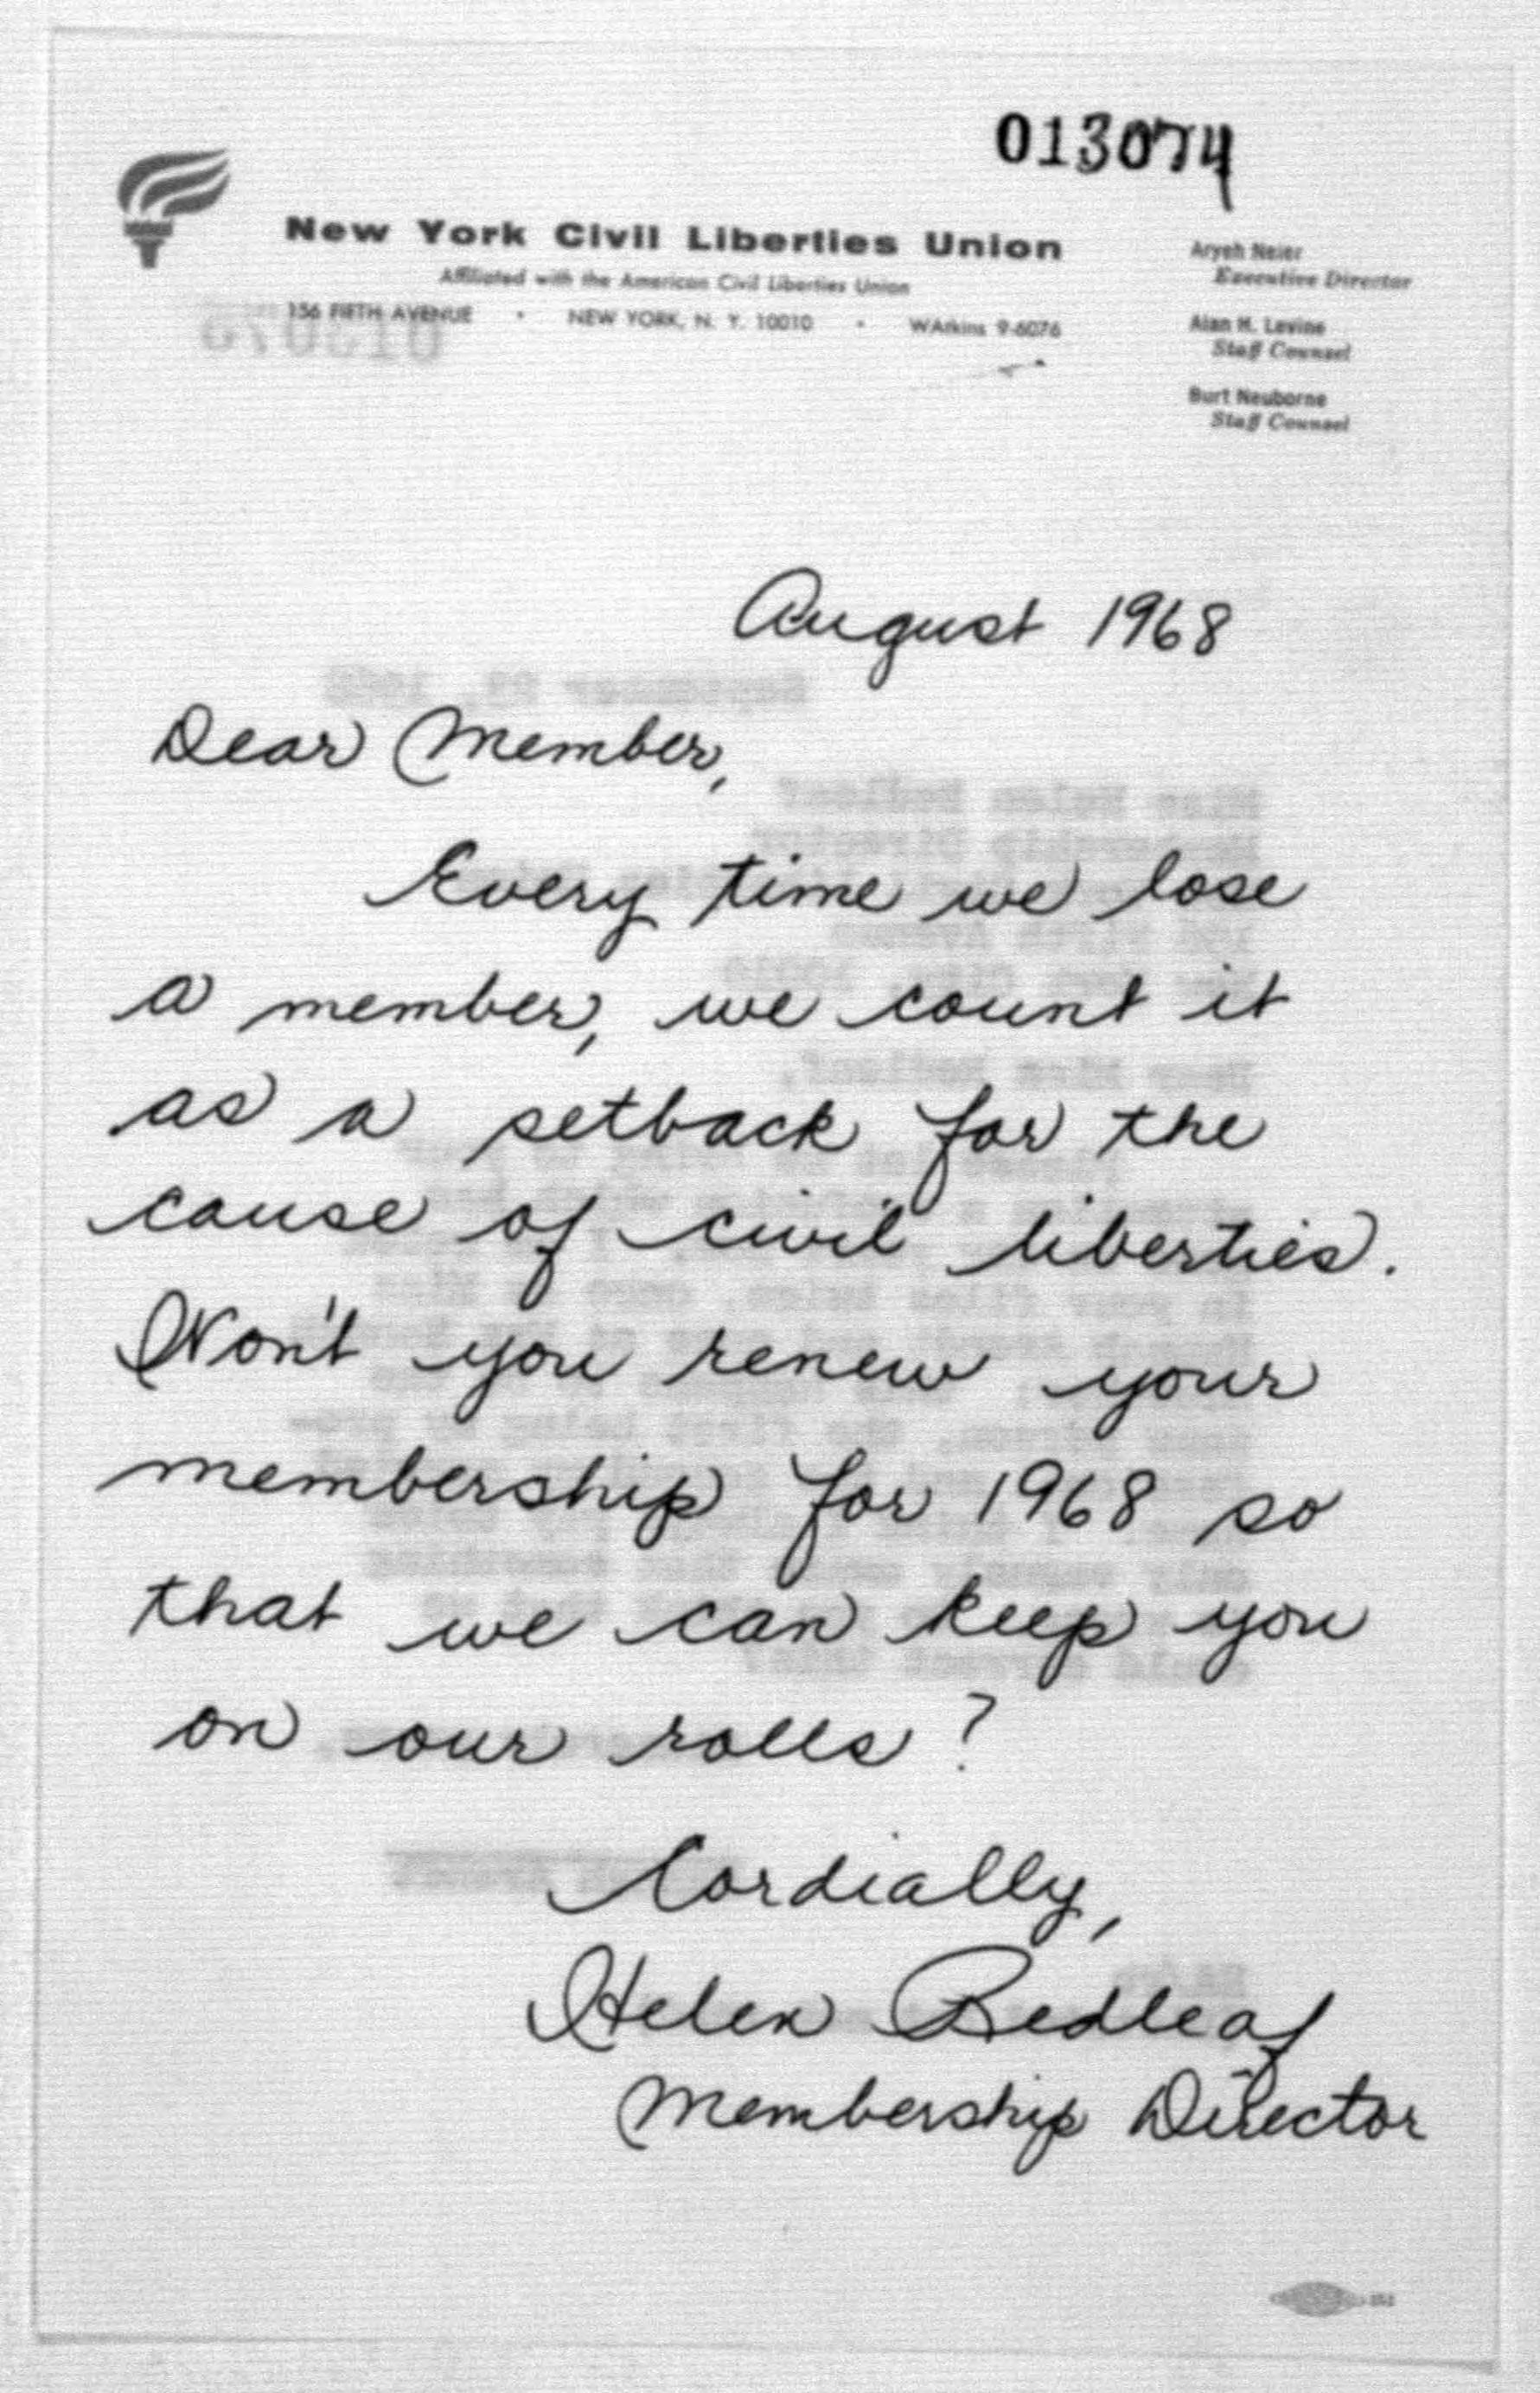 013074
New York Civil Liberties Union
Affiliated with the American Civil Liberties Union
156 FIFTH AVENUE • NEW YORK, N. Y. 10010 • WAtkins 9-6076
Aryeh Neier
Executive Director
Alan H. Levine
Staff Counsel
Burt Neuborne
Staff Counsel
August 1968
Dear Member,
Every time we lose
a member, we count it
as a setback for the
cause of civil liberties.
Won't you renew your
membership for 1968 so
that we can keep you
on our rolls?
Cordially,
Helen Bedleaf
Membership Director